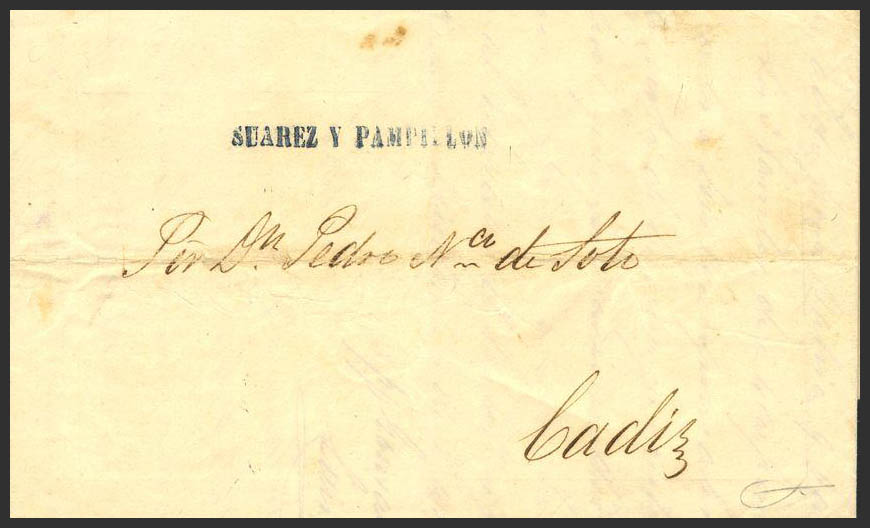 SUAREZ Y PAMPILLON
Por Dn. Pedro Nª. de Soto
Cadiz